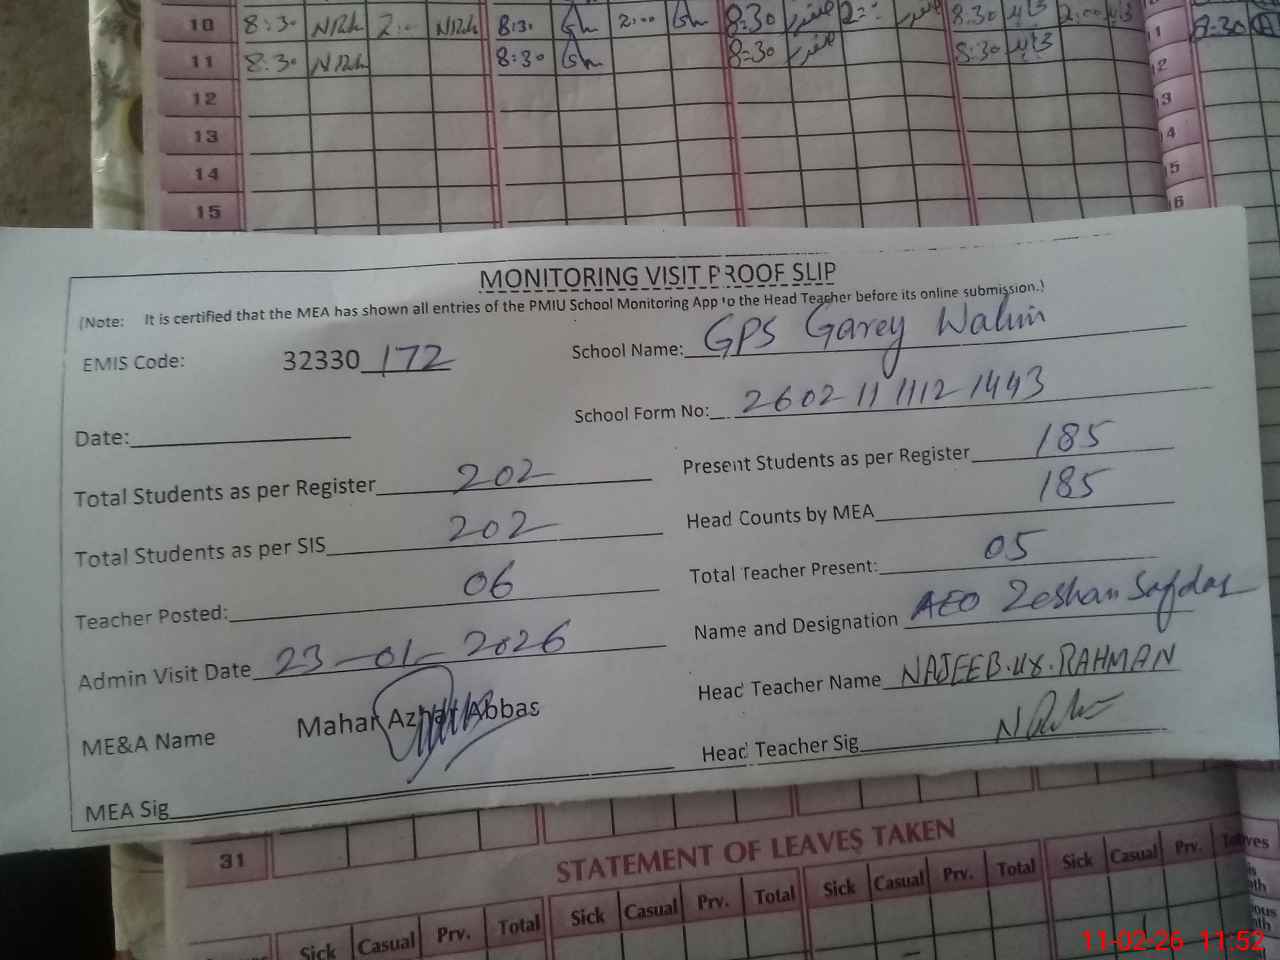 10 8:30 NRh 2:00 NRh 8:30 Gh 2:00 Gh 8:30 صغیر 2:00 صغیر 8:30 2:00
11 8:30 NRh 8:30 Gh 8:30 صغیر 8:30
12
13
14
15
1 8:30
2
3
4
5
6
MONITORING VISIT PROOF SLIP
(Note: It is certified that the MEA has shown all entries of the PMIU School Monitoring App to the Head Teacher before its online submission.)
EMIS Code: 32330 172
School Name: GPS Garey Wahin
School Form No: 2602 11 1112 1443
Date:
Total Students as per Register 202
Present Students as per Register 185
Total Students as per SIS 202
Head Counts by MEA 185
Teacher Posted: 06
Total Teacher Present: 05
Admin Visit Date 23-01-2026
Name and Designation AEO Zeshan Safdar
ME&A Name Mahar Azhar Abbas
Head Teacher Name NAJEEB.ur.RAHMAN
MEA Sig
Head Teacher Sig
31
STATEMENT OF LEAVES TAKEN
Sick Casual Prv. Total Sick Casual Prv. Total Sick Casual Prv. Total Sick Casual Prv.
11-02-26 11:52